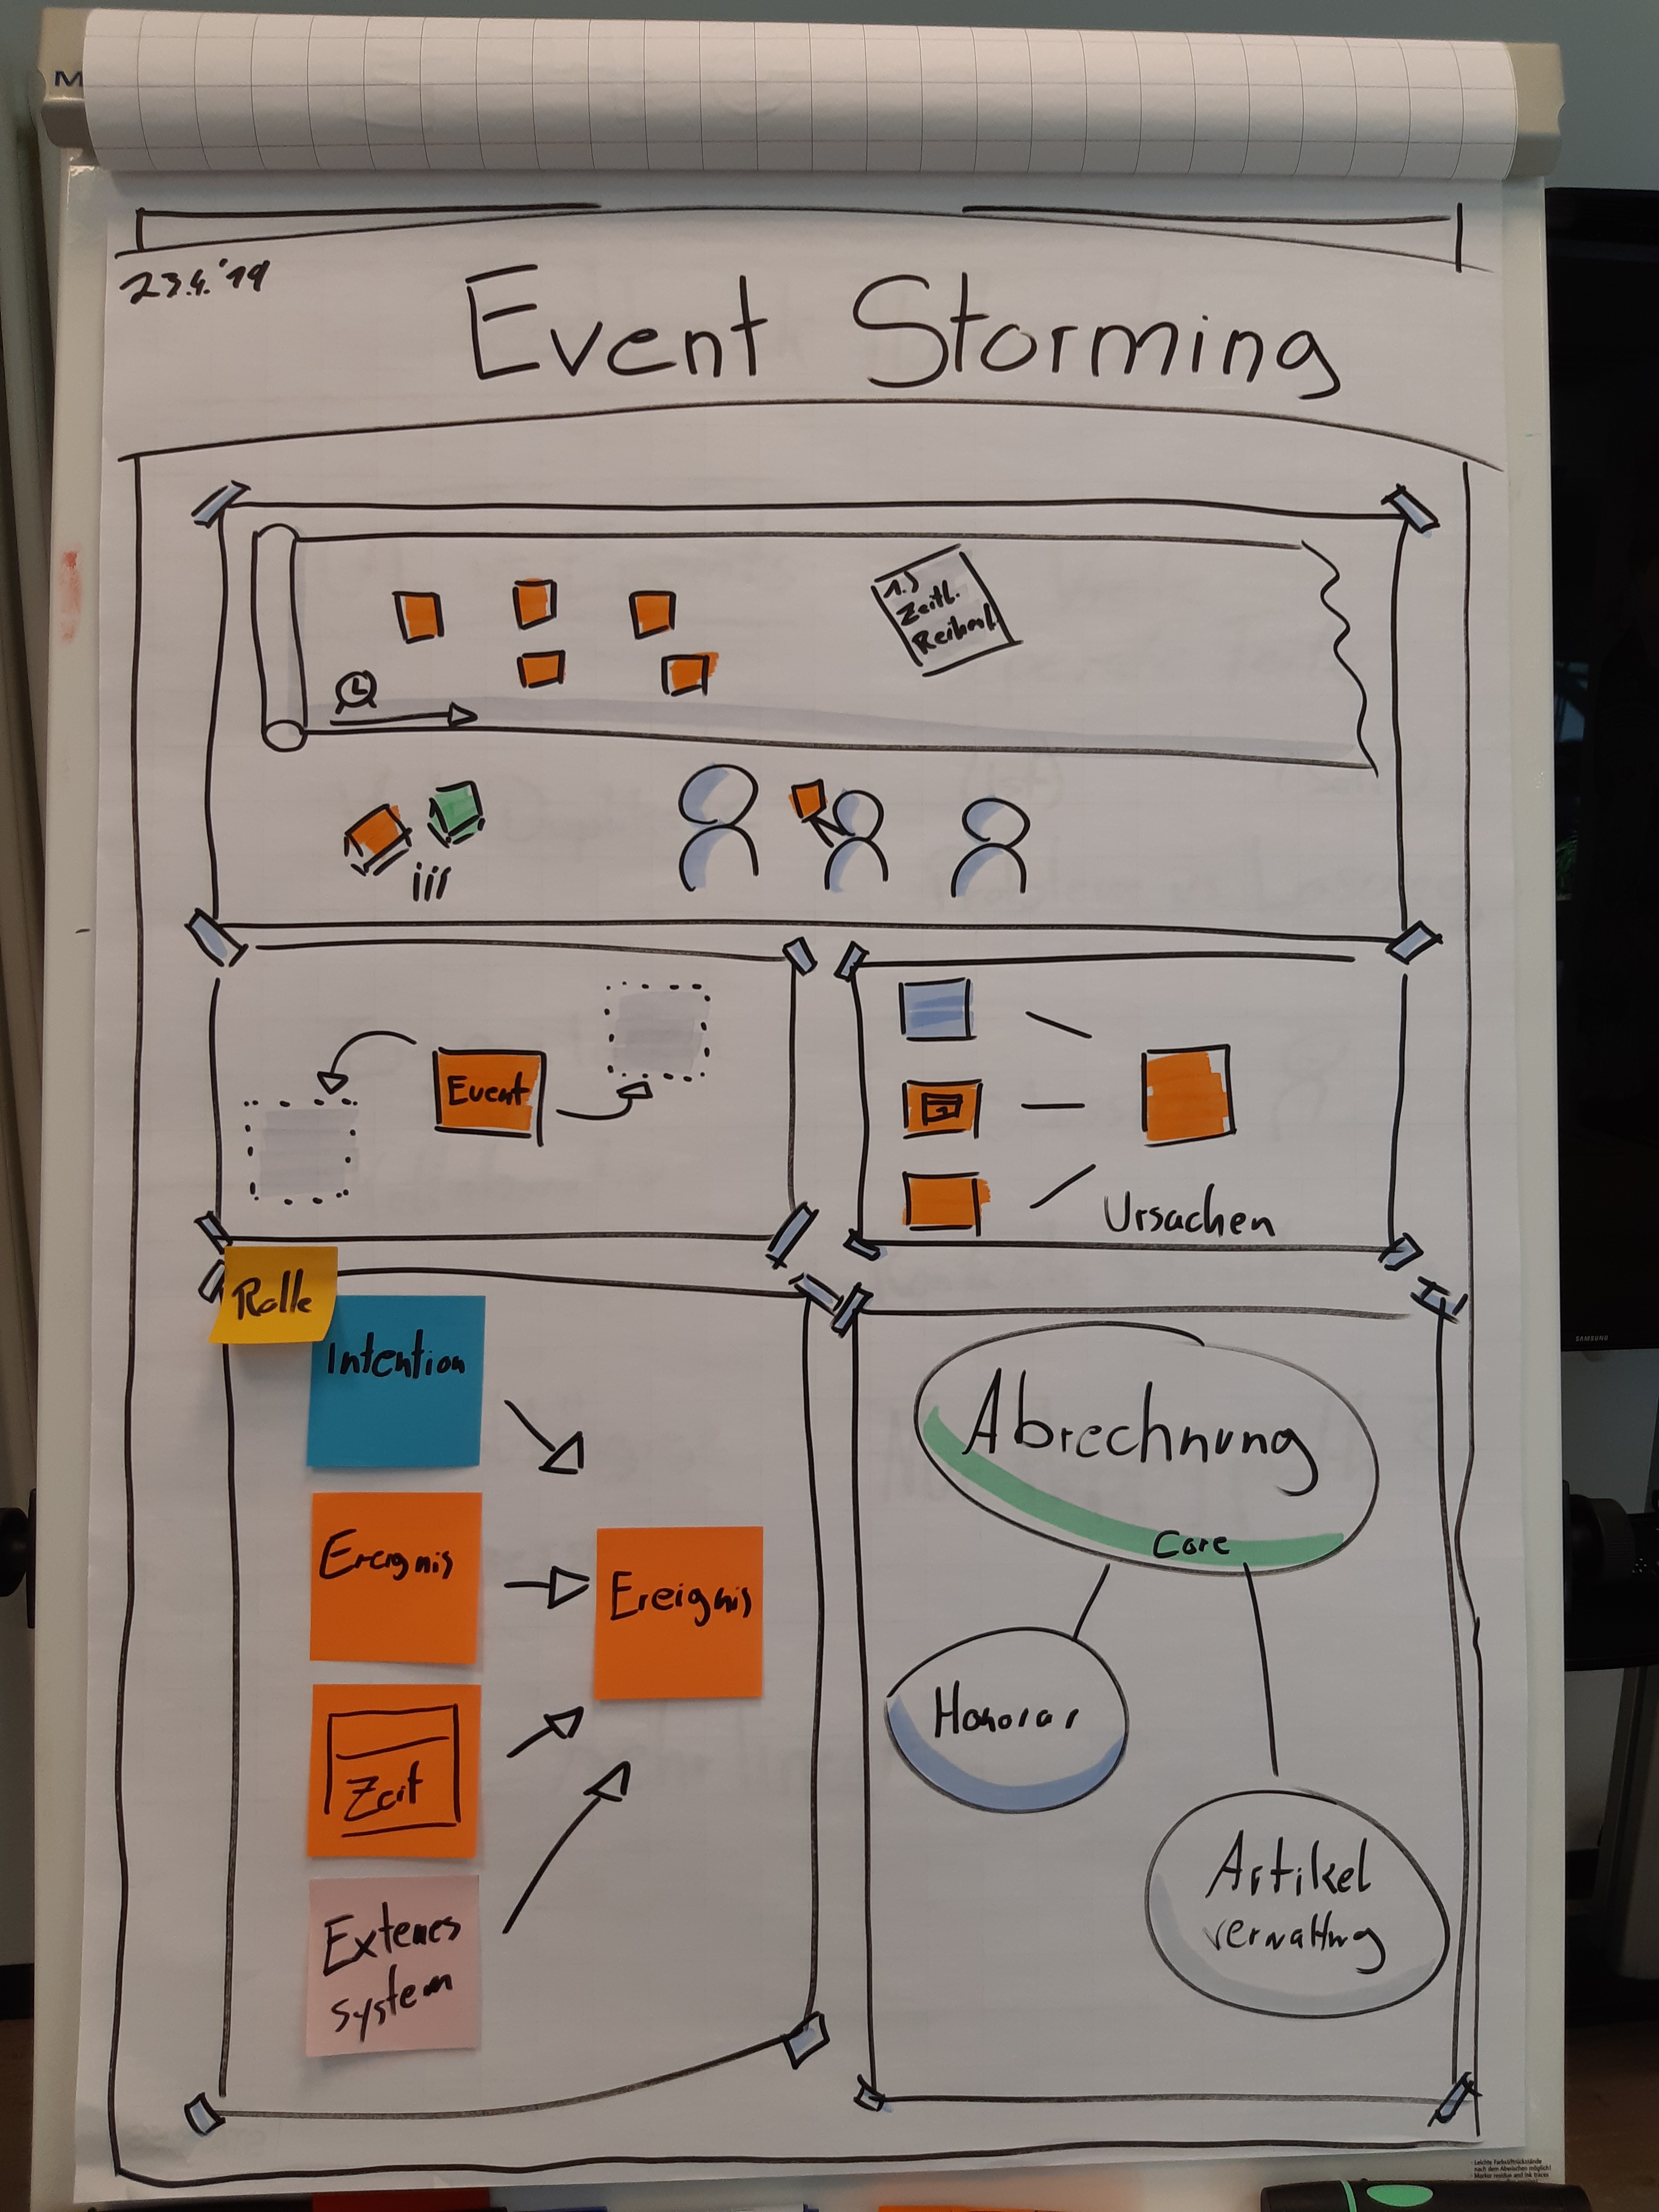 M
23.4.'19
Event Storming
1.)
Zeitl.
Event
Ursachen
Rolle
Intention
Ereignis
Ereignis
Zeit
Externes
system
Abrechnung
Core
Honorar
Artikel
verwaltung
SAMSUNG